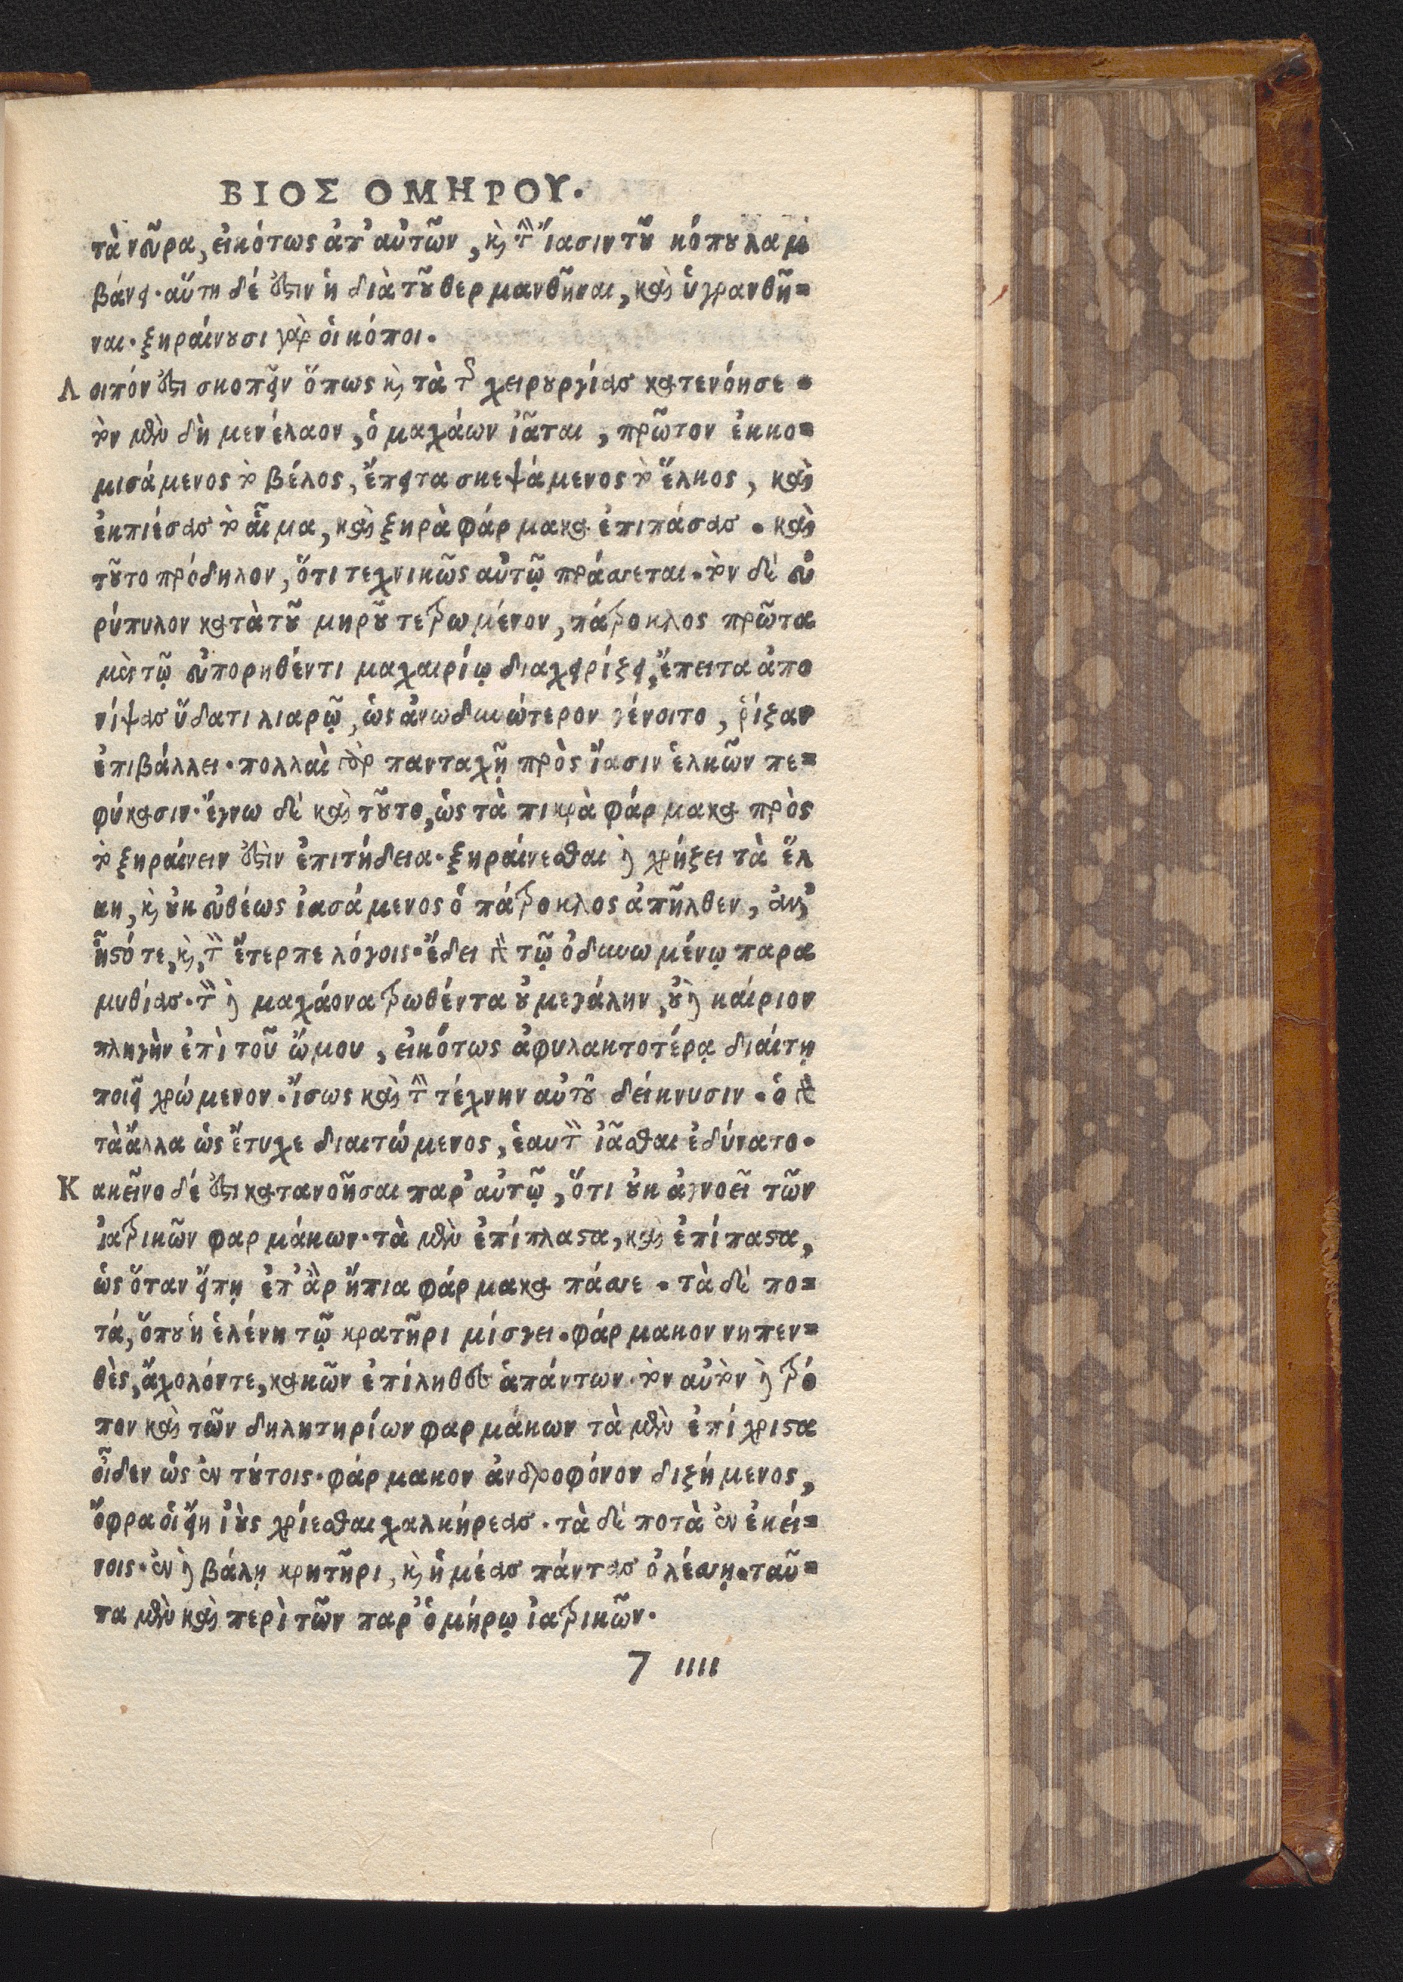 ΒΙΟΣ ΟΜΗΡΟΥ.
τὰ νεῦρα, εἰκότως ἀπ' αὐτῶν, καὶ τὴν ἴασιν τοῦ κόπου λαμ
βάνει. αὕτη δέ ἐστιν ἡ διὰ τοῦ θερμανθῆναι, καὶ ὑγρανθῆ=
ναι. ξηραίνουσι γὰρ οἱ κόποι.
Λοιπόν ἐστι σκοπεῖν ὅπως καὶ τὰ τῆς χειρουργίας κατενόησε.
τὸν μὲν δὴ μενέλαον, ὁ μαχάων ἰᾶται, πρῶτον ἐκκο=
μισάμενος τὸ βέλος, ἔπειτα σκεψάμενος τὸ ἕλκος, καὶ
ἐκπιέσας τὸ αἷμα, καὶ ξηρὰ φάρμακα ἐπιπάσας. καὶ
τοῦτο πρόδηλον, ὅτι τεχνικῶς αὐτῷ πράσσεται. τὸν δὲ εὐ
ρύπυλον κατὰ τοῦ μηροῦ τετρωμένον, πάτροκλος πρῶτα
μὲν τῷ εὐπορηθέντι μαχαιρίῳ διαχειρίξει, ἔπειτα ἀπο
νίψας ὕδατι λιαρῷ, ὡς ἀνωδυνώτερον γένοιτο, ῥίξαν
ἐπιβάλλει. πολλαὶ γὰρ πανταχῇ πρὸς ἴασιν ἑλκῶν πε=
φύκασιν. ἔγνω δὲ καὶ τοῦτο, ὡς τὰ πικρὰ φάρμακα πρὸς
τὸ ξηραίνειν ἐστὶν ἐπιτήδεια. ξηραίνεσθαι δὲ χρήξει τὰ ἕλ
κη, καὶ οὐκ εὐθέως ἰασάμενος ὁ πάτροκλος ἀπῆλθεν, ἀλλ'
ἧστό τε, καὶ, τὸν ἔτερπε λόγοις. ἔδει γὰρ τῷ ὀδυνωμένῳ παρα
μυθίας. τὸν δὲ μαχάονα τρωθέντα οὐ μεγάλην, οὐδὲ καίριον
πληγὴν ἐπὶ τοῦ ὤμου, εἰκότως ἀφυλακτοτέρᾳ διαίτῃ
ποιεῖ χρώμενον. ἴσως καὶ τὴν τέχνην αὐτοῦ δείκνυσιν. ὁ γὰρ
τὰ ἄλλα ὡς ἔτυχε διαιτώμενος, ἑαυτὸν ἰᾶσθαι ἐδύνατο.
Κακεῖνο δέ ἐστι κατανοῆσαι παρ' αὐτῷ, ὅτι οὐκ ἀγνοεῖ τῶν
ἰατρικῶν φαρμάκων. τὰ μὲν ἐπίπλαστα, καὶ ἐπίπαστα,
ὡς ὅταν εἴπῃ ἐπ' ἂρ ἤπια φάρμακα πάσσε. τὰ δὲ πο=
τά, ὅπου ἡ ἑλένη τῷ κρατῆρι μίσγει. φάρμακον νηπεν=
θὲς, ἄχολόντε, κακῶν ἐπίληθον ἁπάντων. τὸν αὐτὸν δὲ τρό
πον καὶ τῶν δηλητηρίων φαρμάκων τὰ μὲν ἐπίχριστα
οἶδεν ὡς ἐν τούτοις. φάρμακον ἀνδροφόνον διξήμενος,
ὄφρα οἱ εἴη ἰοὺς χρίεσθαι χαλκήρεας. τὰ δὲ ποτὰ ἐν ἐκεί=
νοις. ἐν δὲ βάλῃ κρητῆρι, καὶ ἡμέας πάντας ὀλέσσῃ. ταῦ=
τα μὲν καὶ περὶ τῶν παρ' ὁμήρῳ ἰατρικῶν.
7 ιιιι